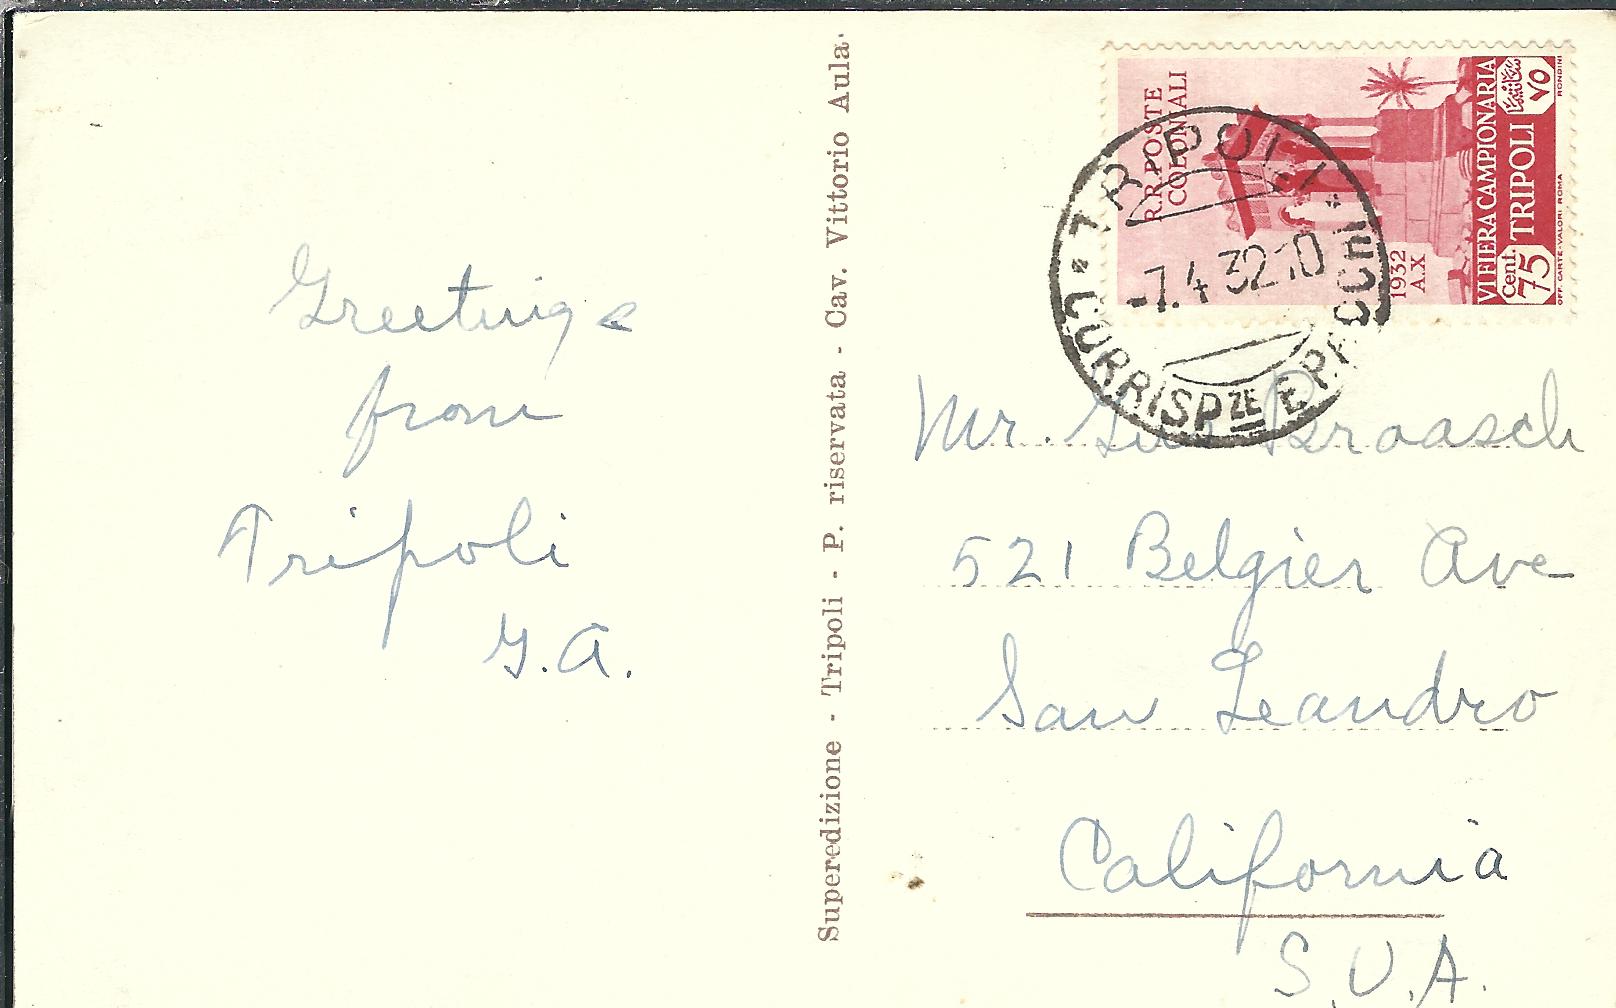 Greetings
from
Tripoli
G.A.
Superedizione - Tripoli - P. riservata - Cav. Vittorio Aula.
R.R. POSTE
COLONIALI
1932
A.X
VI FIERA CAMPIONARIA
Cent.
75
TRIPOLI
٧٥
OFF. CARTE-VALORI ROMA
RONDINI
* TRIPOLI *
-7.4.32.10
CORRISPZE E PACCHI
Mr. Gus Braasch
521 Belgier Ave
San Leandro
California
S.U.A.